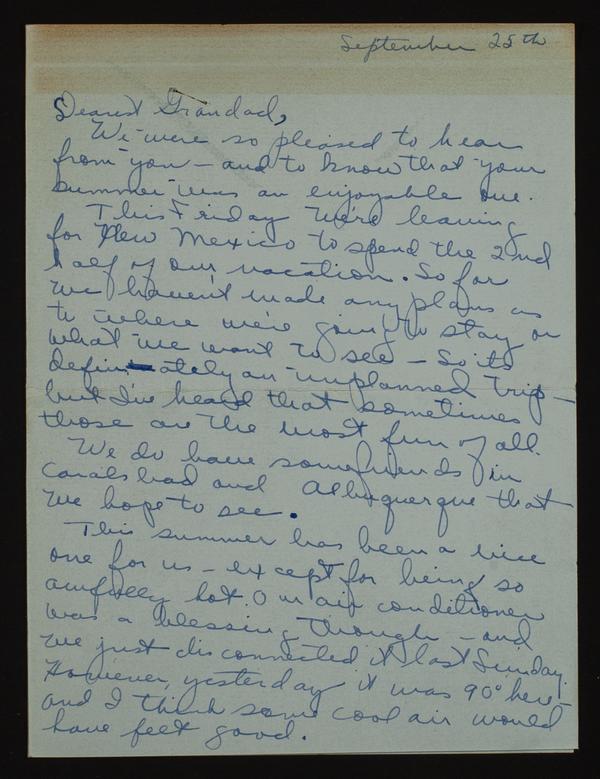 September 25th
Dearest Grandad,
We were so pleased to hear
from you - and to know that your
summer was an enjoyable one.
This Friday we're leaving
for New Mexico to spend the 2nd
half of our vacation. So far
we haven't made any plans as
to where we're going to stay or
what we want to see - So its
definately an unplanned trip -
but I've heard that sometimes
those are the most fun of all.
We do have some friends in
Carlsbad and Albuquerque that
we hope to see.
This summer has been a nice
one for us - except for being so
awfully hot. Our air conditioner
was a blessing though - and
we just disconnected it last Sunday.
However, yesterday it was 90° here -
and I think some cool air would
have felt good.